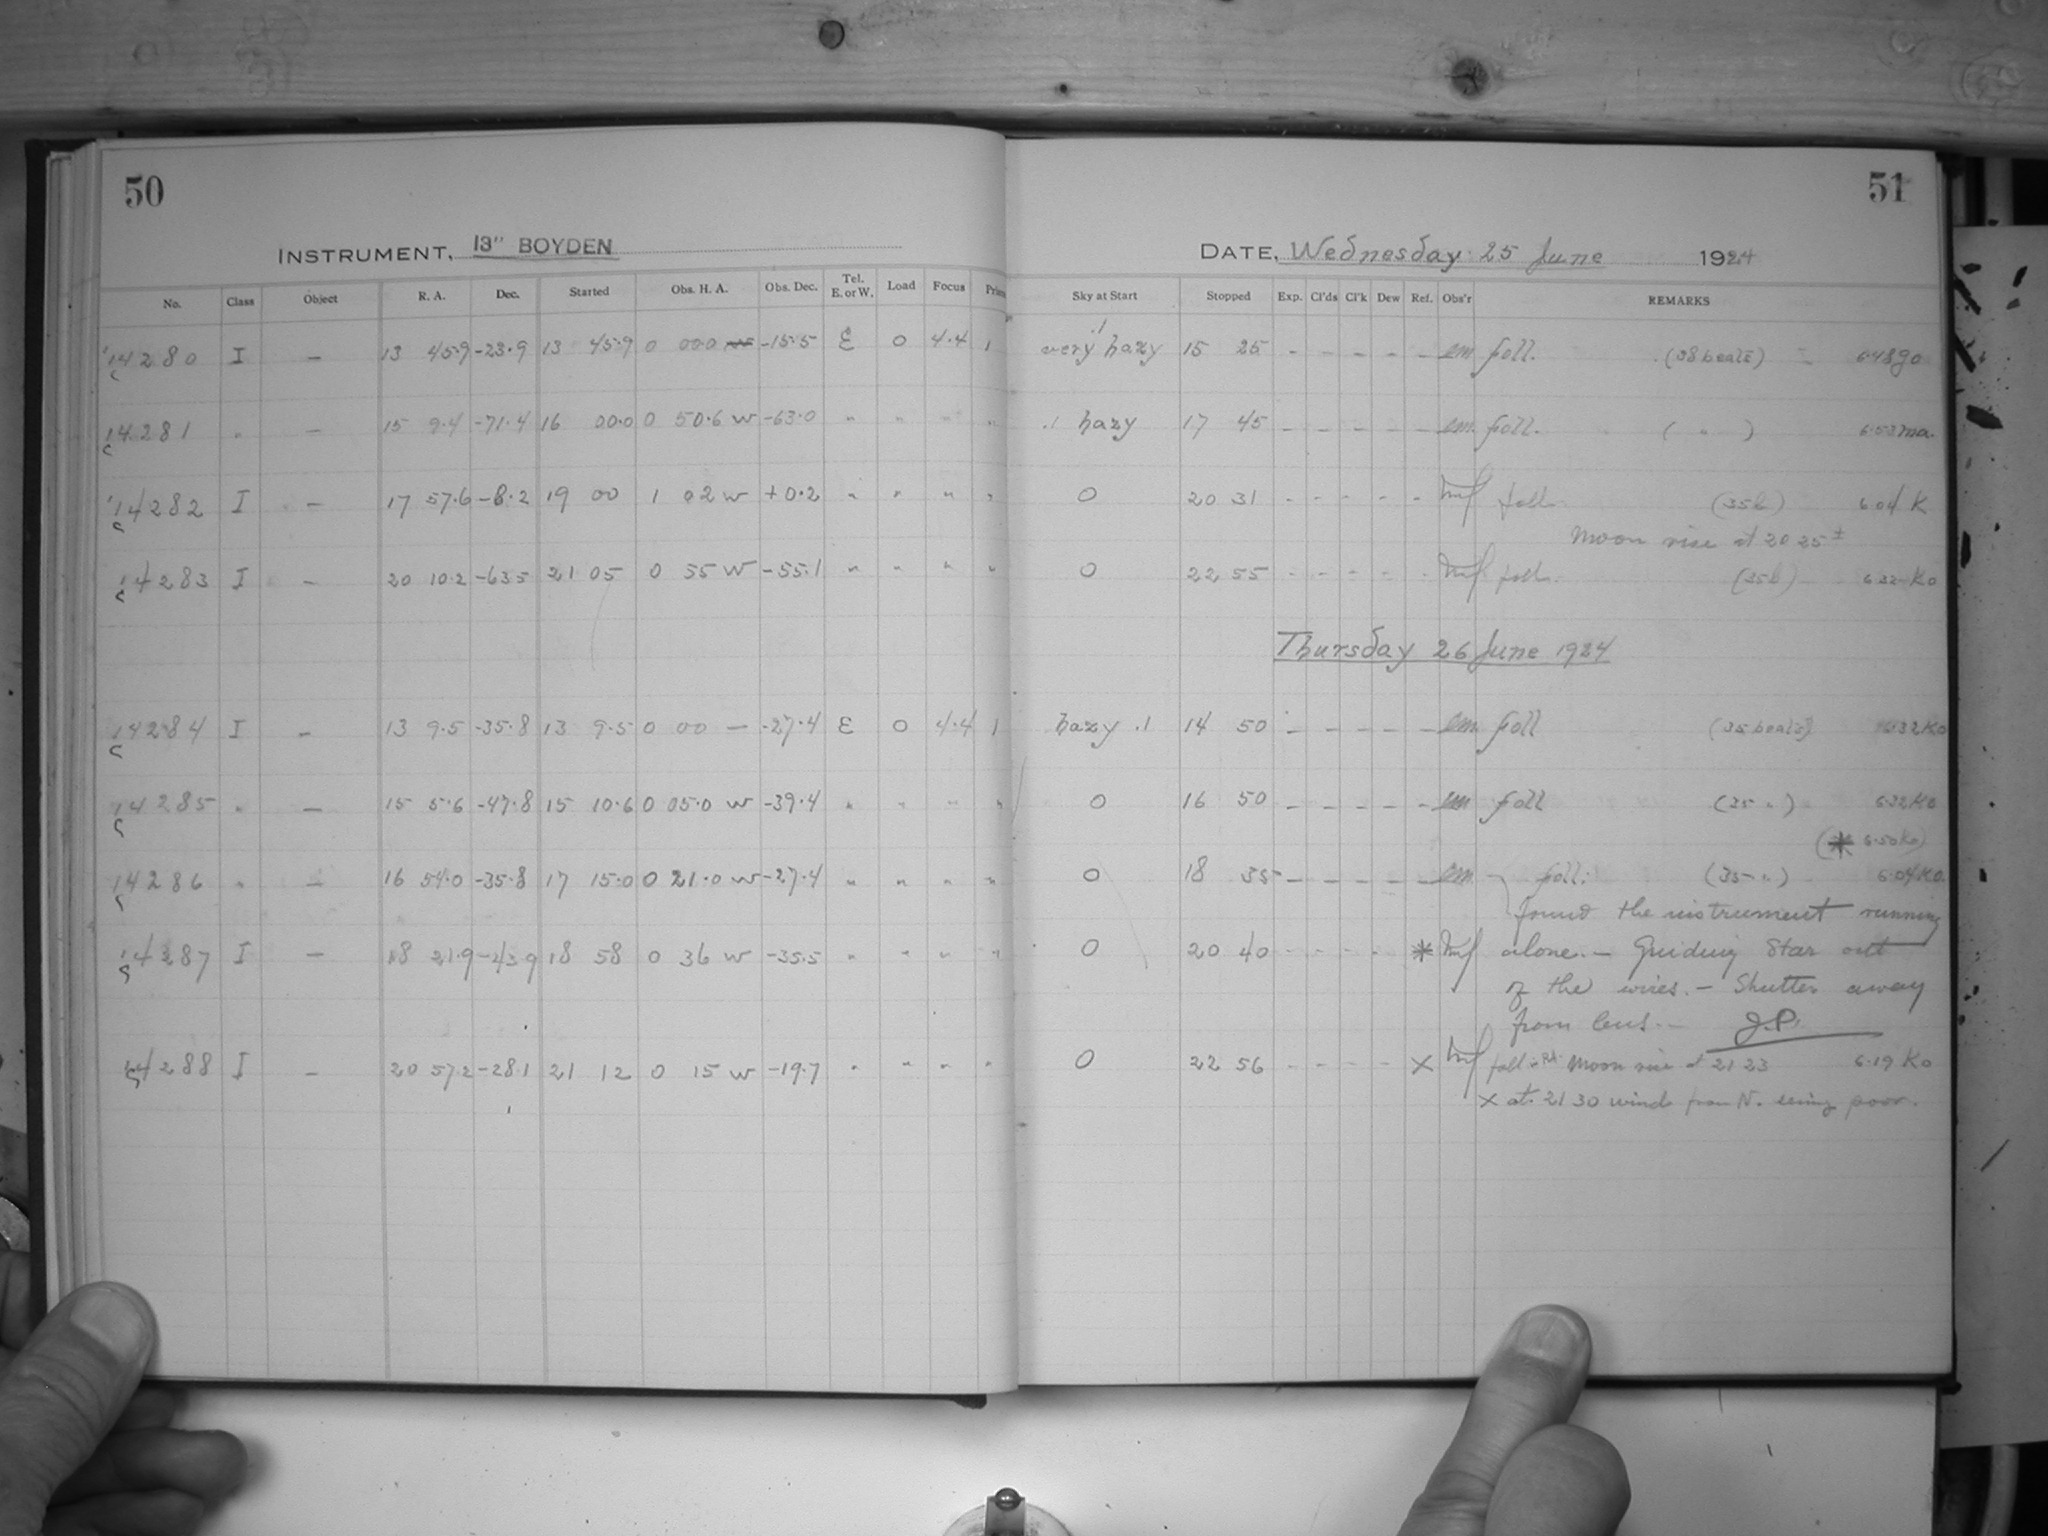 50
INSTRUMENT, 13" BOYDEN
No. Class Object R. A. Dec. Started Obs. H. A. Obs. Dec. Tel. E. or W. Load Focus
14280 I — 13 45.9 -23.9 13 45.9 0 00.0 -15.5 E 0 4.4 1
14281 " — 15 9.4 -71.4 16 00.0 0 50.6 W -63.0 " " " "
14282 I — 17 57.6 -8.2 19 00 1 02 W +0.2 " " " "
14283 I — 20 10.2 -63.5 21 05 0 55 W -55.1 " " " "
14284 I — 13 9.5 -35.8 13 9.5 0 00 — -27.4 E 0 4.4 1
14285 " — 15 5.6 -47.8 15 10.6 0 05.0 W -39.4 " " " "
14286 " — 16 54.0 -35.8 17 15.0 0 21.0 W -27.4 " " " "
14287 I — 18 21.9 -43.9 18 58 0 36 W -35.5 " " " "
14288 I — 20 57.2 -28.1 21 12 0 15 W -19.7 " " " "
51
DATE, Wednesday 25 June 1924
Sky at Start Stopped Exp. Cl'ds Cl'k Dew Ref. Obs'r REMARKS
.1
very hazy 15 25 - - - - - em foll. (38 beats)
.1 hazy 17 45 - - - - - em foll. ( " ) 6.53 ma.
0 20 31 - - - - - foll. (35b) 6.04 K
Moon rise at 20 25 ±
0 22 55 - - - - - foll. (35b) 6.32 Ko
Thursday 26 June 1924
hazy .1 14 50 - - - - - em foll (35 beats) 6.32 Ko
0 16 50 - - - - - em foll (35 ") 6.32 Ko
(* 6.50 Ko)
0 18 35 - - - - - em foll. (35 ") 6.04 Ko
found the instrument running
0 20 40 - - - - * alone. — Guiding Star out
of the wires. — Shutter away
from lens. — J.P.
0 22 56 - - - - x foll. Moon rise at 21 23 6.19 Ko
x at 21 30 wind from N. seeing poor.